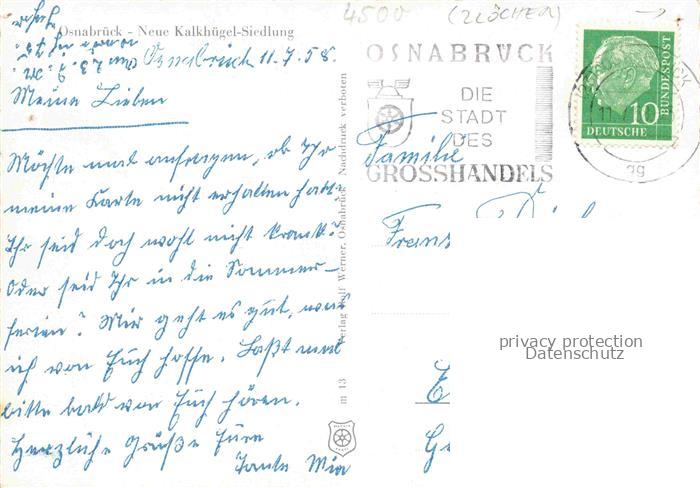 4500 (2 LÖCHER)
Osnabrück - Neue Kalkhügel-Siedlung
Osnabrück 11.7.58.
Meine Lieben
Möchte mal anfragen, ob Ihr
meine Karte nicht erhalten habt.
Ihr seid doch wohl nicht krank?
Oder seid Ihr in die Sommer-
ferien? Mir geht es gut, was
ich von Euch hoffe. Laßt mal
bitte bald von Euch hören.
Herzliche Grüße Eure
Tante Mia
Verlag Rolf Werner, Osnabrück Nachdruck verboten
m 13
OSNABRÜCK
DIE
STADT
DES
GROSSHANDELS
10
DEUTSCHE
BUNDESPOST
Familie
Franz
privacy protection
Datenschutz